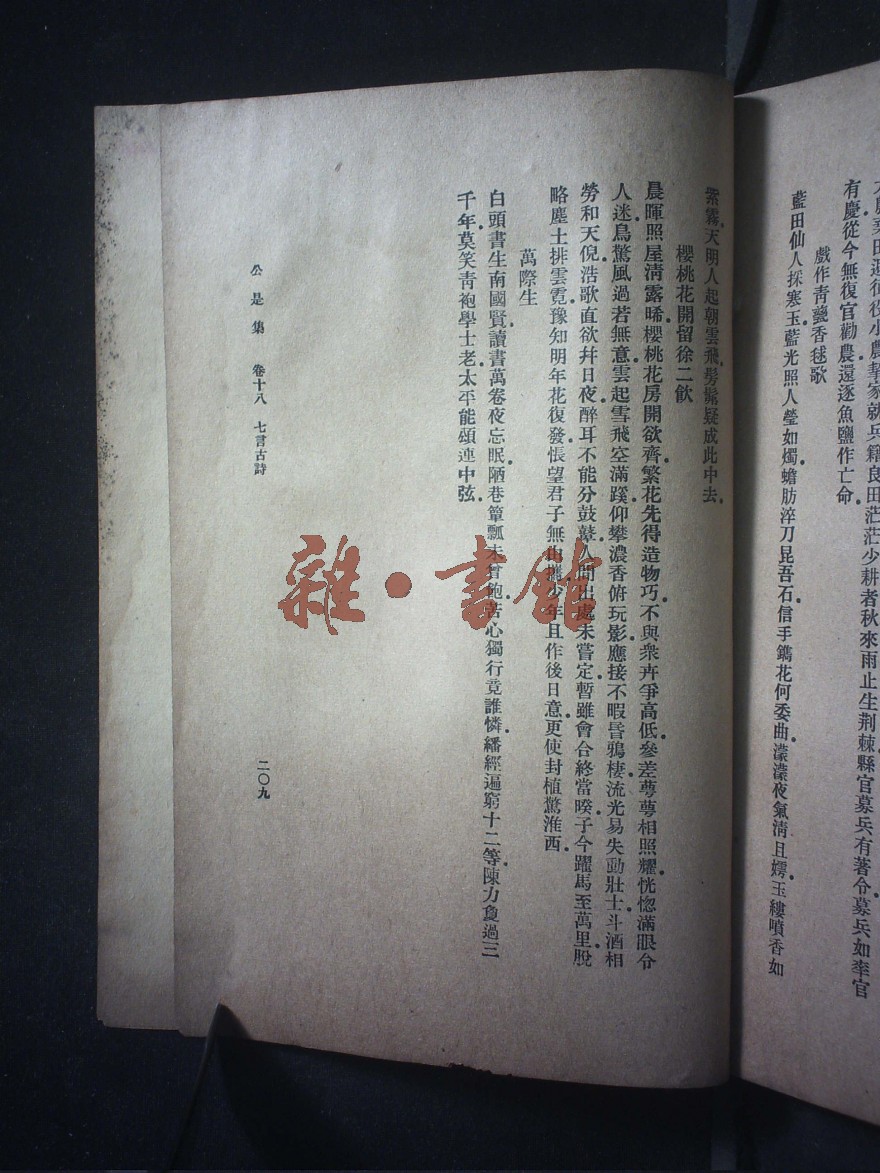 有慶從今無復官勸農還逐魚鹽作亡命。
戲作靑甆香毬歌
藍田仙人採寒玉藍光照人瑩如燭蟾肪淬刀昆吾石信手鐫花何委曲濛濛夜氣淸且嫮玉縷噴香如
紫霧天明人起朝雲飛髣髴疑成此中去。
櫻桃花開留徐二飮
晨暉照屋淸露晞櫻桃花房開欲齊繁花先得造物巧不與衆卉爭高低參差蕚蕚相照耀恍惚滿眼令
人迷鳥驚風過若無意雲起雪飛空滿蹊仰攀濃香俯玩影應接不暇昏鴉棲流光易失動壯士斗酒相
勞和天倪浩歌直欲幷日夜醉耳不能分鼓鼙人間出處未嘗定暫雖會合終當暌子今躍馬至萬里脫
略塵土排雲霓豫知明年花復發悵望君子無由攜少年且作後日意更使封植驚淮西。
萬際生
白頭書生南國賢讀書萬卷夜忘眠陋巷簞瓢未曾飽苦心獨行竟誰憐繙經遍窮十二等陳力負過三
千年莫笑靑袍學士老太平能頌連中弦。
公是集 卷十八 七言古詩
二〇九
雜·書館